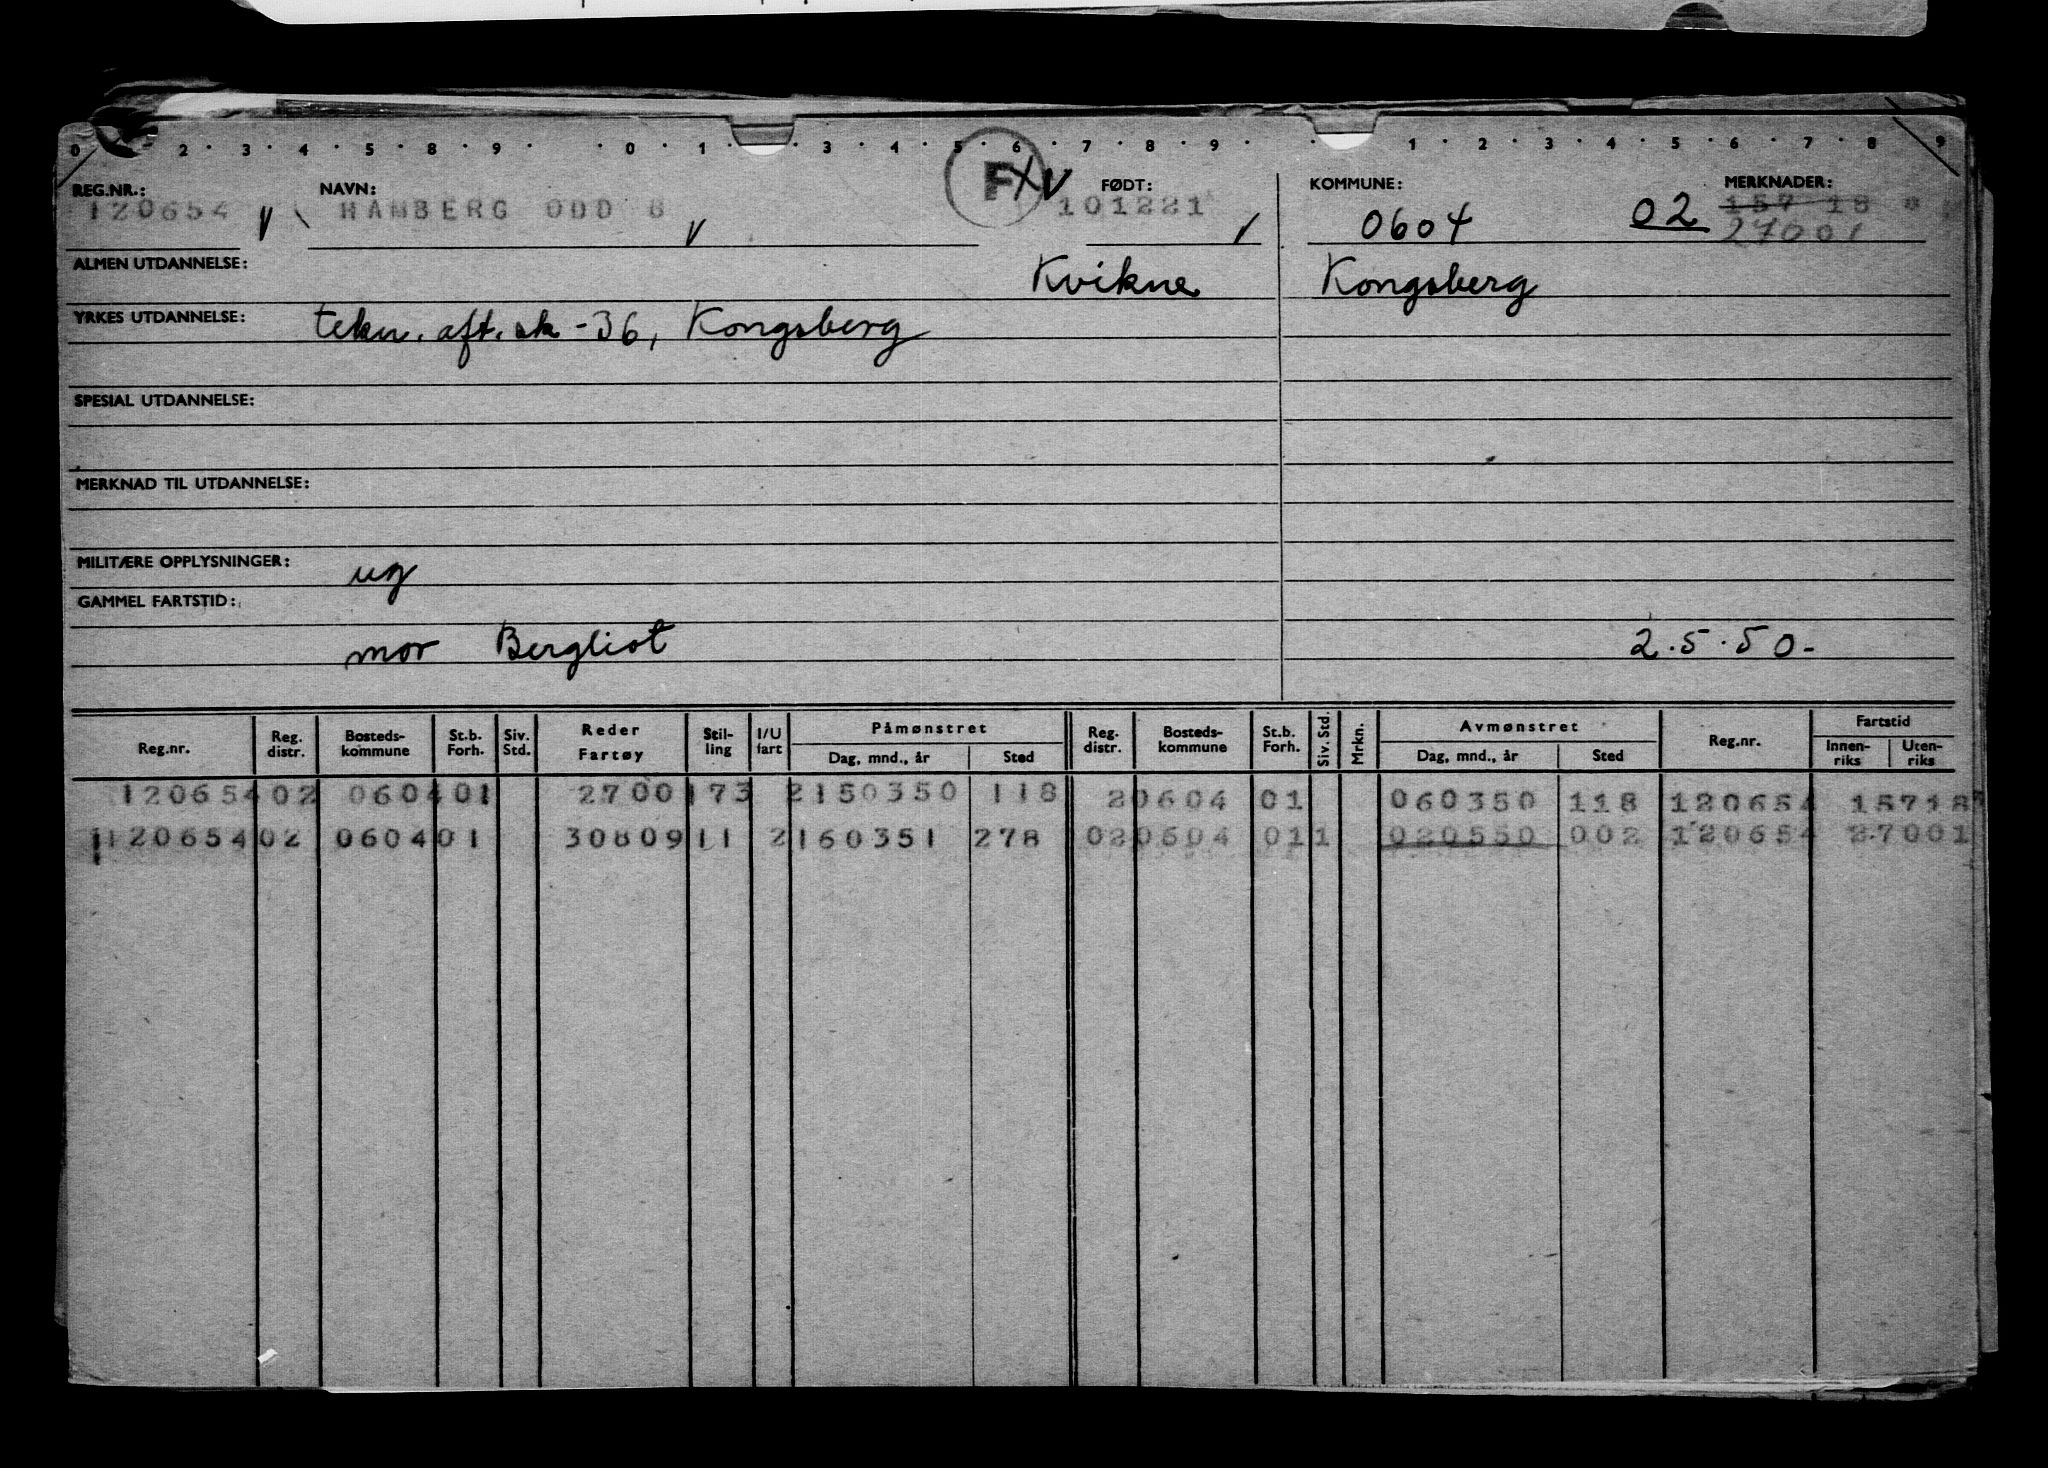 0 2 3 4 5 8 9 0 1 3 4 5 6 7 8 9 1 2 3 4 5 6 7 8 9
F X V
REG.NR.: NAVN: FØDT: KOMMUNE: MERKNADER:
120654 V HAMBERG ODD B V 101221 0604 02 157 18
27001
ALMEN UTDANNELSE: Kvikne Kongsberg
YRKES UTDANNELSE: tekn. aft. sk - 36, Kongsberg
SPESIAL UTDANNELSE:
MERKNAD TIL UTDANNELSE:
MILITÆRE OPPLYSNINGER: ug
GAMMEL FARTSTID:
mor Bergliot 2.5.50-
Reg.nr. Reg. distr. Bosteds-kommune St.b. Forh. Siv. Std. Reder Fartøy Stil-ling I/U fart Påmønstret Dag, mnd., år Sted Reg. distr. Bosteds-kommune St.b. Forh. Siv. Std. Mrkn. Avmønstret Dag, mnd., år Sted Reg.nr. Fartstid Innen-riks Uten-riks
120654 02 0604 01 2700 173 2 150350 118 2 0604 01 060350 118 120654 15718
120654 02 0604 01 30809 11 2 160351 278 02 0604 01 1 020550 002 120654 27001